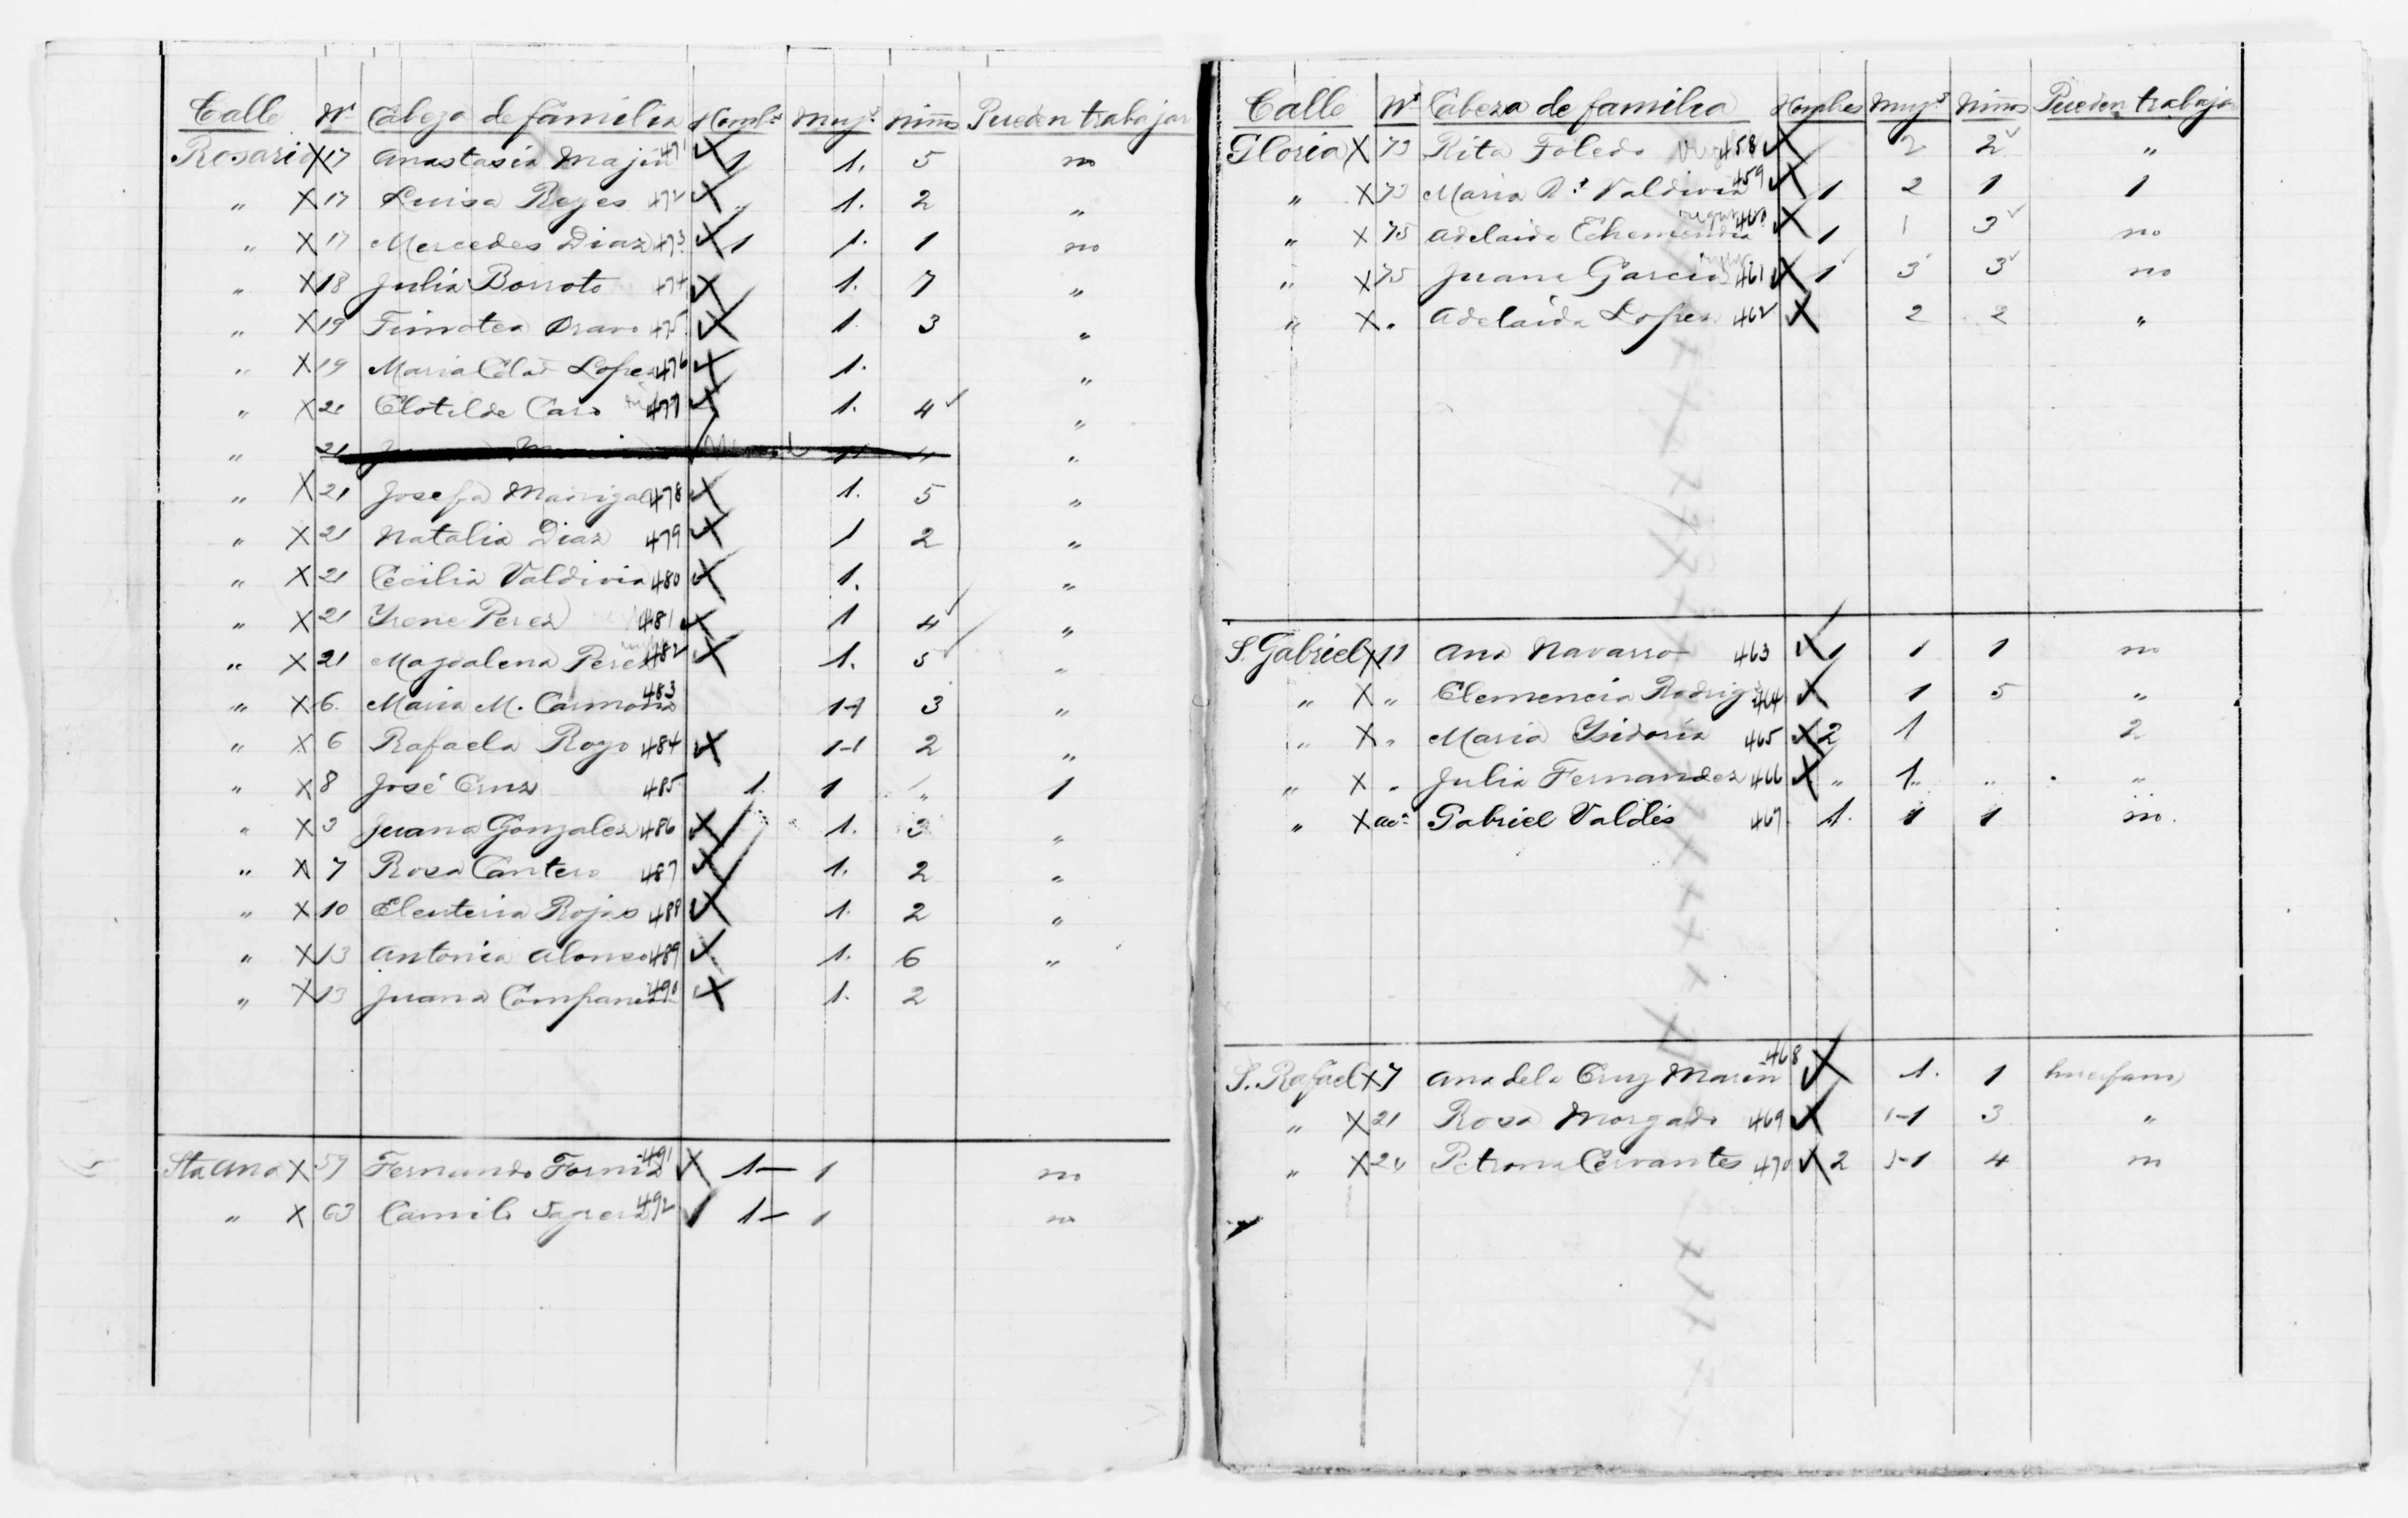 Calle Nº Cabeza de familia Hombs Mujs Niños Pueden trabajar
Rosario X 17 Anastasia Majin 471 X 1 1. 5 no
" X 17 Luisa Reyes 472 X " 1. 2 "
" X 17 Mercedes Diaz 473 X 1 1. 1 no
" X 18 Julia Borroto 474 X 1. 7 "
" X 19 Timotea Bravo 475 X 1. 3 "
" X 19 Maria Lopez 476 X 1. "
" X 21 Clotilde Caro 477 X 1. 4 "
" 21 "
" X 21 Josefa Madrigal 478 X 1. 5 "
" X 21 Natalia Diaz 479 X 1 2 "
" X 21 Cecilia Valdivia 480 X 1. "
" X 21 Yrene Perez 481 X 1 4 "
" X 21 Magdalena Perez 482 X 1. 5 "
" X 6. Maria M. Carmona 483 1-1 3 "
" X 6 Rafaela Royo 484 X 1-1 2 "
" X 8 José Cruz 485 1. 1 " 1
" X 3 Juana Gonzalez 486 X 1. 3 "
" X 7 Rosa Cantero 487 X 1. 2 "
" X 10 Eleuteria Rojas 488 X 1. 2 "
" X 13 Antonia Alonso 489 X 1. 6 "
" X 13 Juana 490 X 1. 2
Sta Ana X 59 Fernando 491 X 1— 1 no
" X 63 Camilo 492 1— 1 no
Calle Nº Cabeza de familia Hombres Mujs Niños Pueden trabajar
Gloria X 73 Rita Toledo 458 X 2 2 "
" X 73 Maria Rª Valdivia 459 X 1 2 1 1
" X 75 Adelaida Echemendia 460 X 1 1 3 no
" X 75 Juana Garcia 461 X 1 3 3 no
" X " Adelaida Lopez 462 X 2 2 "
S. Gabriel X 11 Ana Navarro 463 X 1 1 1 no
" X " Clemencia Rodrigz 464 X 1 5 "
" X " Maria Ysidoria 465 X 2 1 2
" X " Julia Fernandez 466 X " 1. " "
" X acª Gabriel Valdés 467 1. 1 1 no.
S. Rafael X 7 Ana dela Cruz Marin 468 X 1. 1 huerfano
" X 21 Rosa Morgado 469 X 1-1 3 "
" X 24 Petrona Cervantes 470 X 2 1-1 4 no